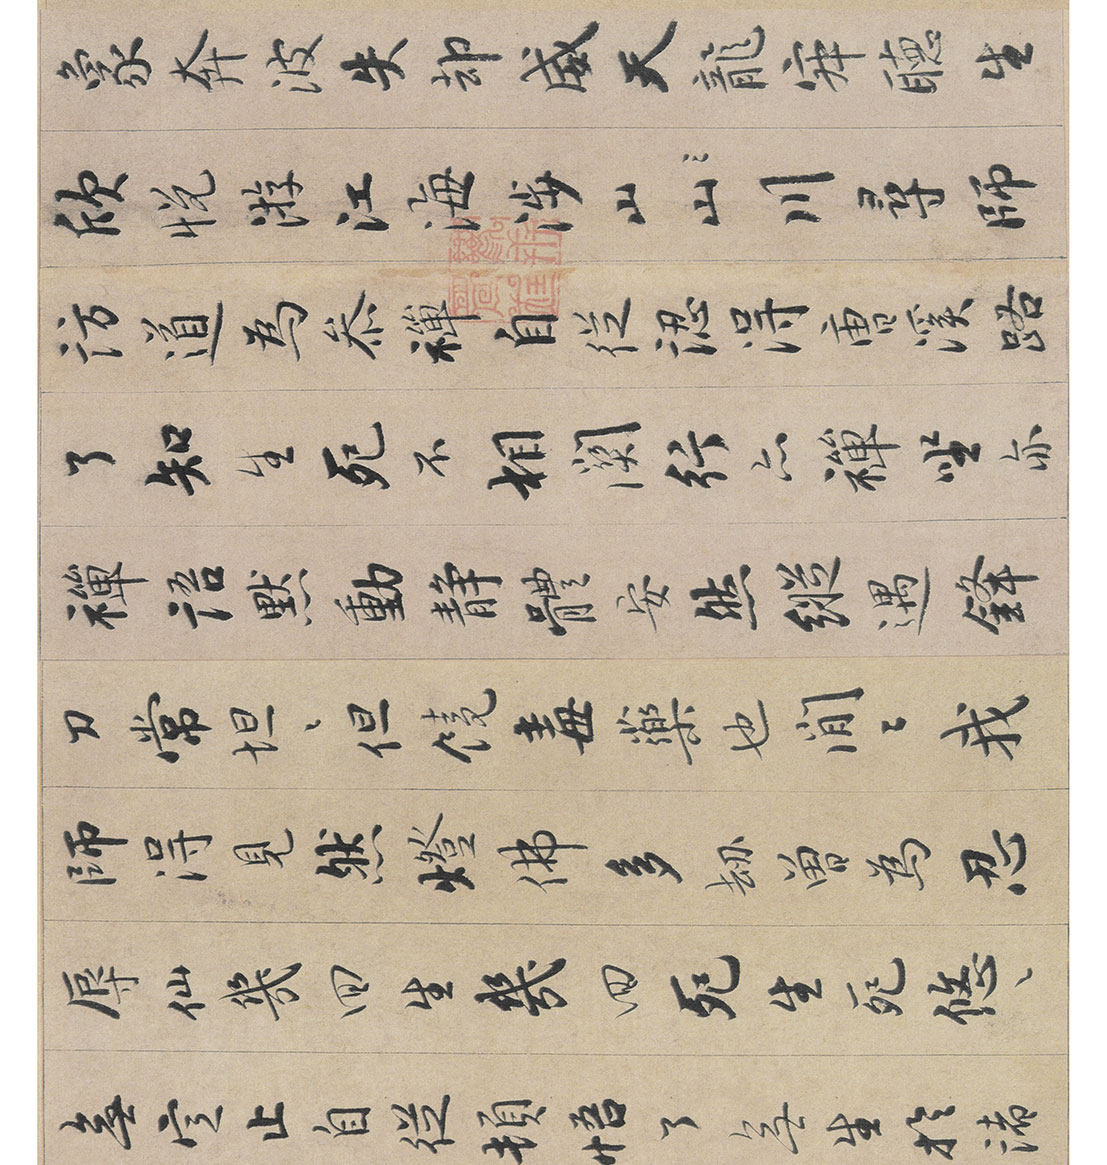 象奔波失却威天龍寂聽生
欣悅游江海涉山山川尋師
訪道為參禪自從認得曹溪路
了知生死不相關行亦禪坐亦
禪語默動靜體安然縱遇鋒
刀常坦、但饒毒藥也閒々我
師得見然燈佛多劫曾為忍
辱仙幾回生幾回死生死悠、
無定止自從頓悟了無生於諸